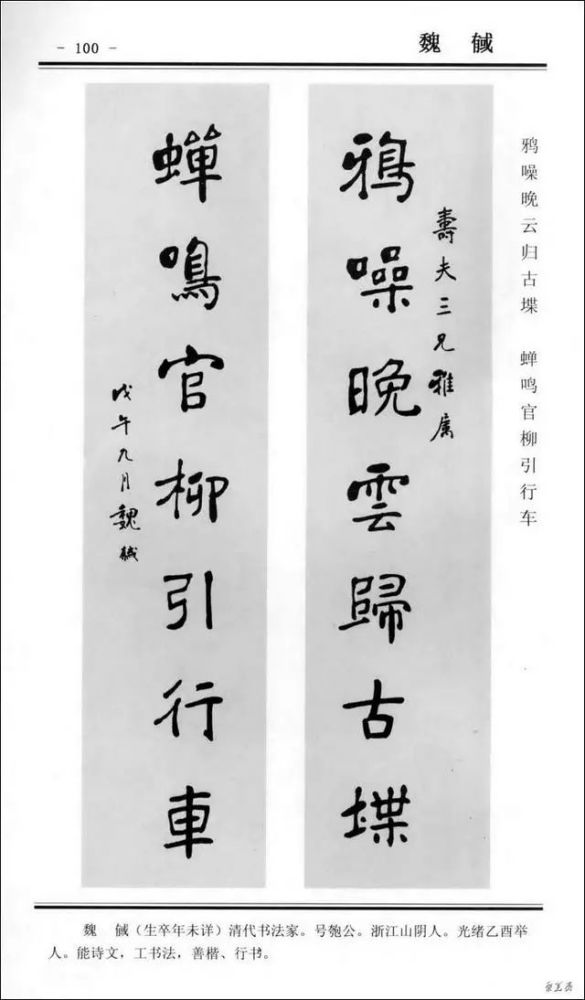 - 100 -
魏 鍼
鸦噪晚云归古堞 蝉鸣官柳引行车
壽夫三兄雅屬
鴉噪晚雲歸古堞
蟬鳴官柳引行車
戊午九月魏鍼
魏 鍼（生卒年未详）清代书法家。号匏公。浙江山阴人。光绪乙酉举
人。能诗文，工书法，善楷、行书。